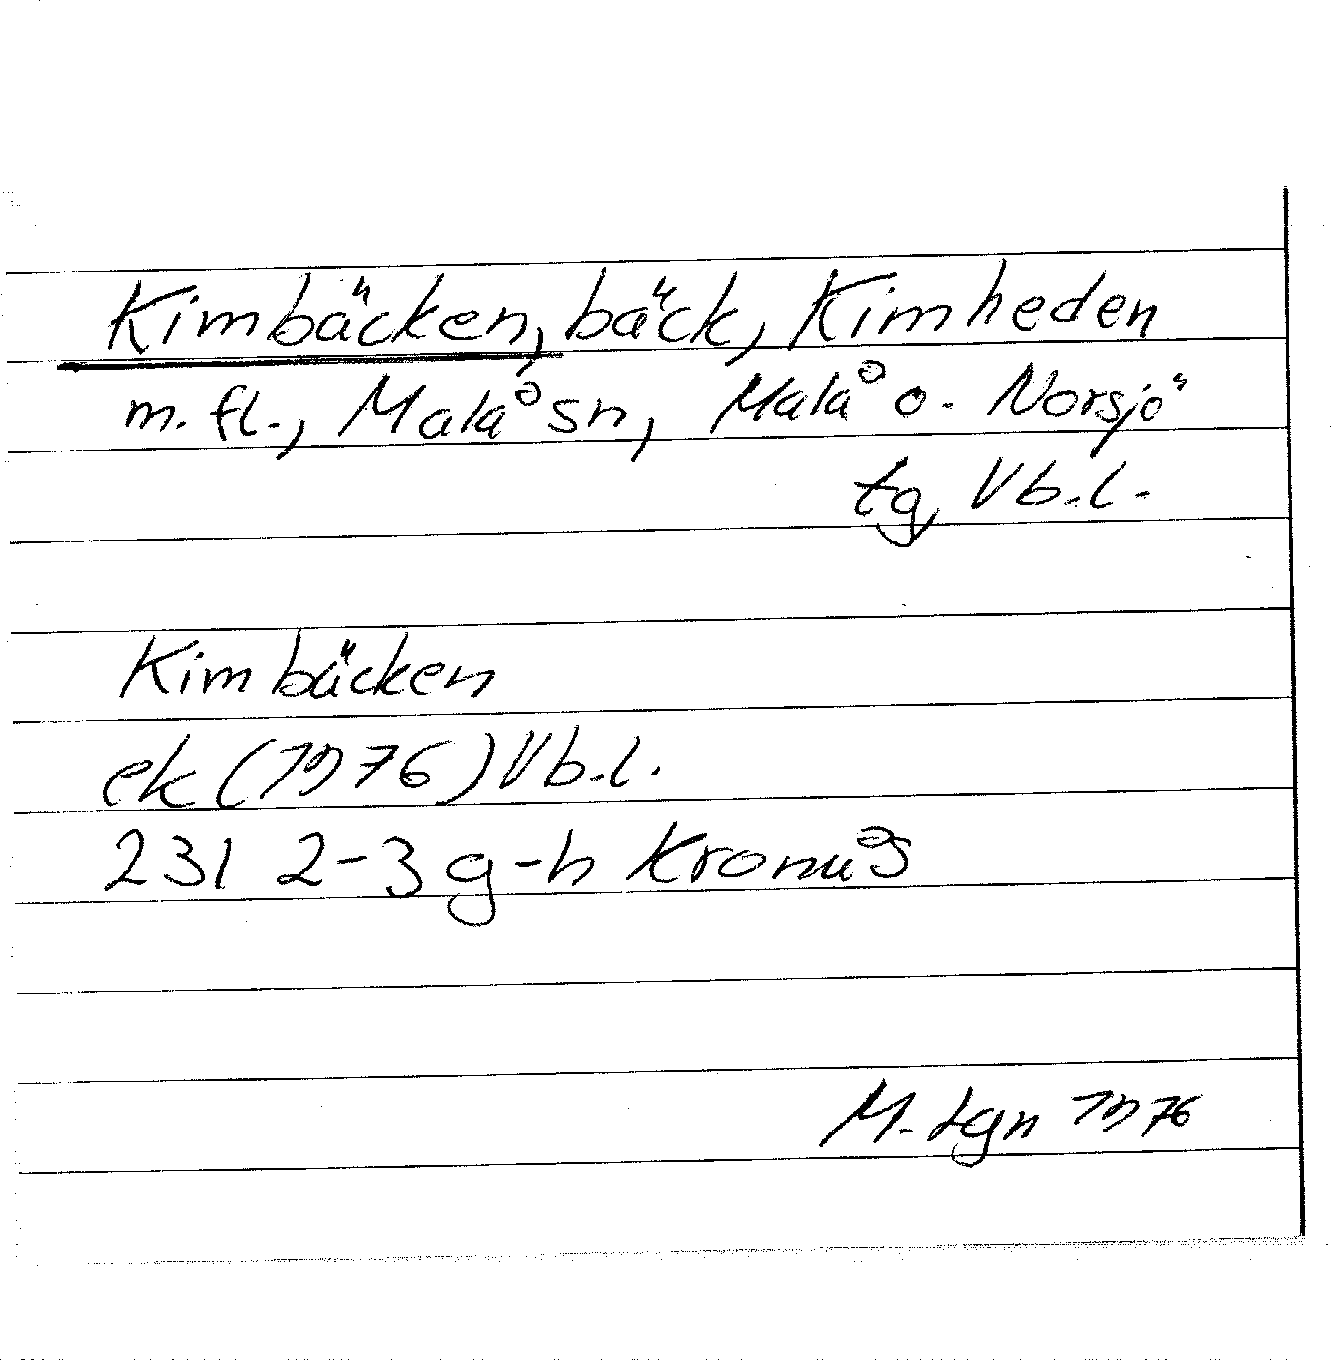 Kimbäcken, bäck, Kimheden
m.fl., Malå sn, Malå o. Norsjö
tg, Vb.l.
Kimbäcken
ek (1976) Vb.l.
231 2-3 g-h Kronås
M. Lgn 1976